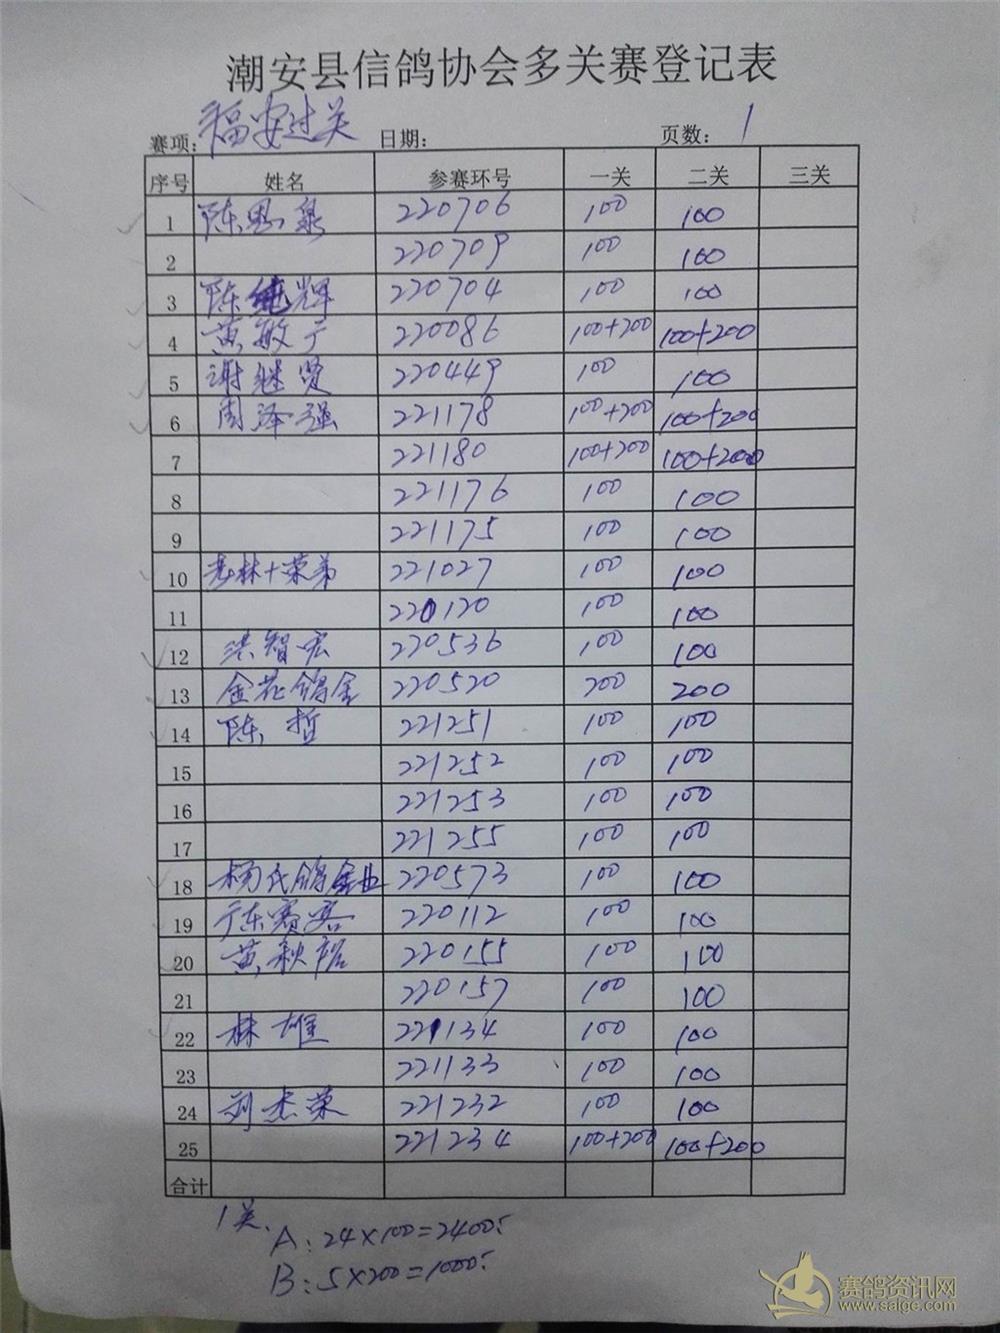 潮安县信鸽协会多关赛登记表
赛项: 福安过关 日期: 页数: 1
序号 姓名 参赛环号 一关 二关 三关
1 陈恩泉 220706 100 100
2 220709 100 100
3 陈纯辉 220704 100 100
4 黄敏于 220086 100+200 100+200
5 谢继贤 220449 100 100
6 周泽强 221178 100+200 100+200
7 221180 100+200 100+200
8 221176 100 100
9 221175 100 100
10 林+荣弟 221027 100 100
11 220120 100 100
12 洪智宏 220536 100 100
13 金花鸽舍 220520 200 200
14 陈哲 221251 100 100
15 221252 100 100
16 221253 100 100
17 221255 100 100
18 杨氏鸽业 220573 100 100
19 广东赛客 220112 100 100
20 黄秋 220155 100 100
21 220157 100 100
22 林雄 221134 100 100
23 221133 100 100
24 刘杰荣 221232 100 100
25 221234 100+200 100+200
合计
1关.
A: 24×100=2400
B: 5×200=1000
赛鸽资讯网
www.saige.com